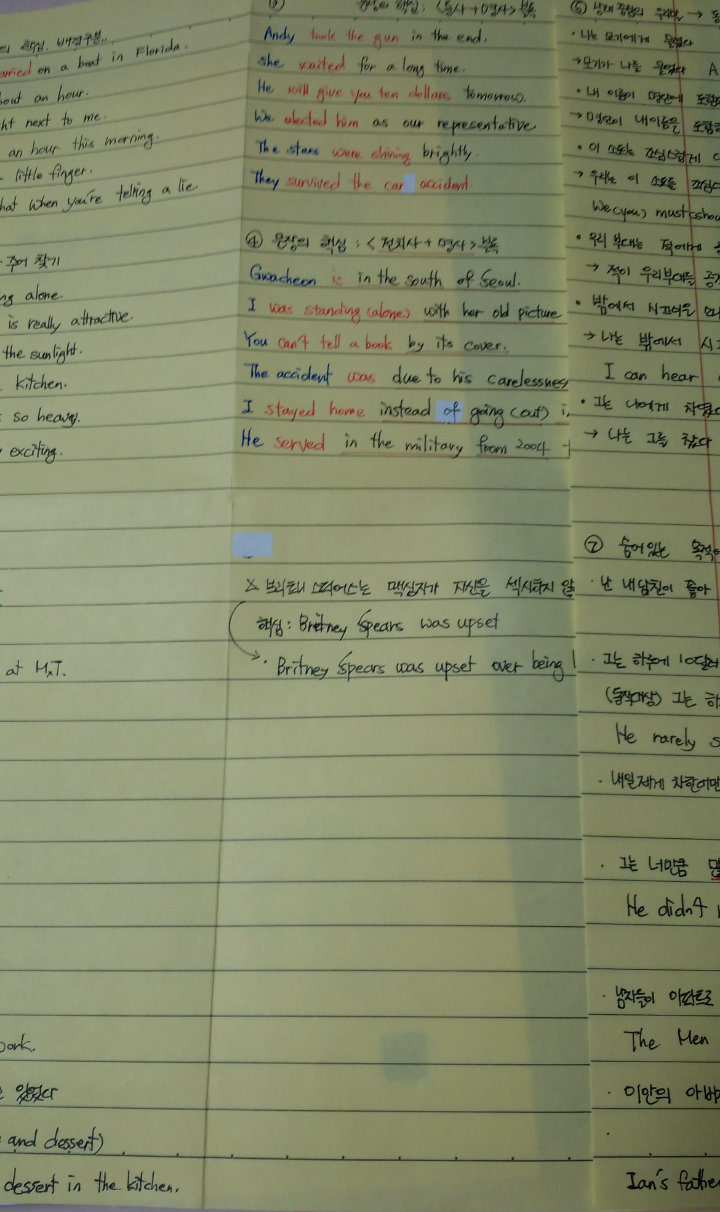 on a boat in Florida.
an hour.
next to me.
an hour this morning.
little finger.
when you're telling a lie.
주어 찾기
alone
is really attractive.
the sunlight.
kitchen.
so heavy.
exciting.
at M.T.
있었다
and dessert)
dessert in the kitchen.
문장의 핵심: <동사 + 명사> 블록
Andy took the gun in the end.
She waited for a long time.
He will give you ten dollars tomorrow.
We elected him as our representative
The stars were shining brightly.
They survived the car accident.
④ 문장의 핵심: <전치사 + 명사> 블록
Gwacheon is in the south of Seoul.
I was standing (alone) with her old picture
You can't tell a book by its cover.
The accident was due to his carelessness
I stayed home instead of going (out)
He served in the military from 2004
브리트니 스피어스는 맥심자가 자신을 섹시하지
핵심: Britney Spears was upset
· Britney Spears was upset over being
⑤
· 나는 모기에게 물렸다
→ 모기가 나를 물었다 A
· 내 이름이 명단에
→ 명단이 내 이름을
· 이 소포는 조심스럽게
→ 우리는 이 소포를
We(you) must
· 우리 부대는 적에게
→ 적이 우리부대를
· 밖에서 시끄러운
→ 나는 밖에서
I can hear
· 그는 나에게
→ 나는 그를 찼다
⑦ 숨어있는
· 난 내 남친이 좋아
· 그는 하루에 10달러
(동작대상) 그는
He rarely
· 내일
· 그는 너만큼
He didn't
· 남자들이 아파트로
The Men
· 이안의 아빠
Ian's father